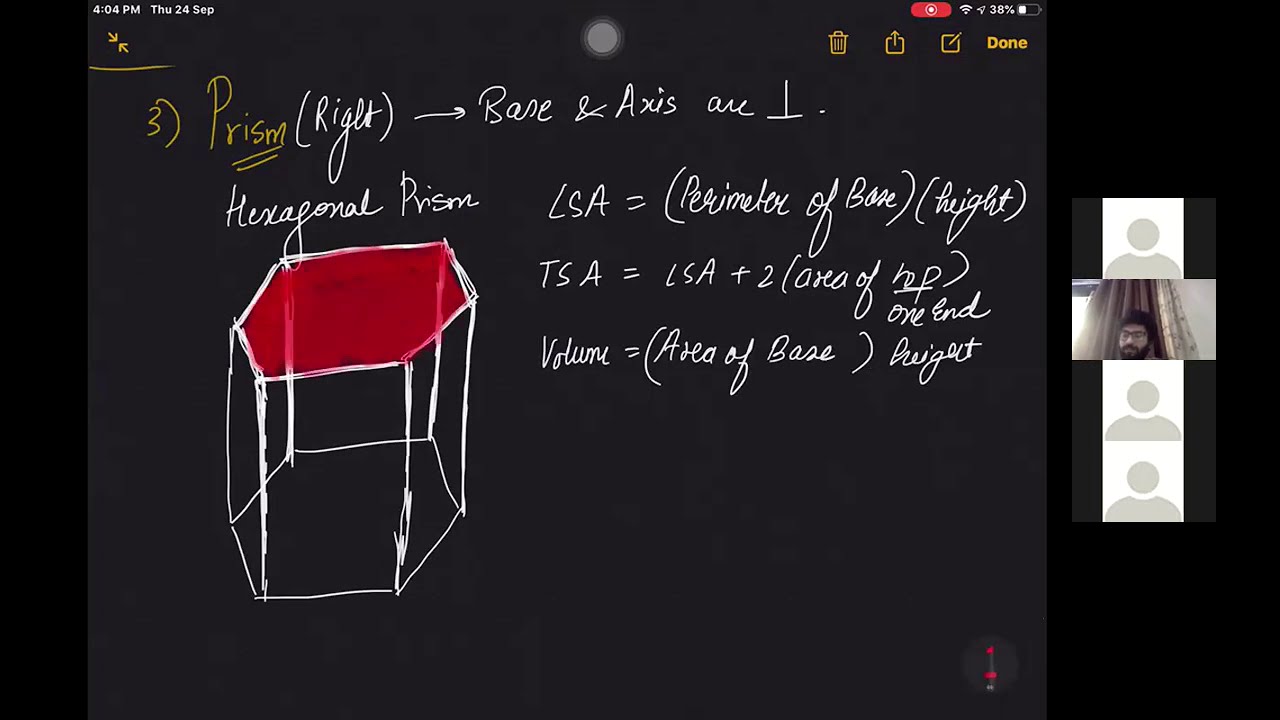 4:04 PM Thu 24 Sep
38%
Done
3) Prism (Right) → Base & Axis are ⊥ .
Hexagonal Prism
LSA = (Perimeter of Base)(height)
TSA = LSA + 2 (area of top)
one End
Volume = (Area of Base ) height